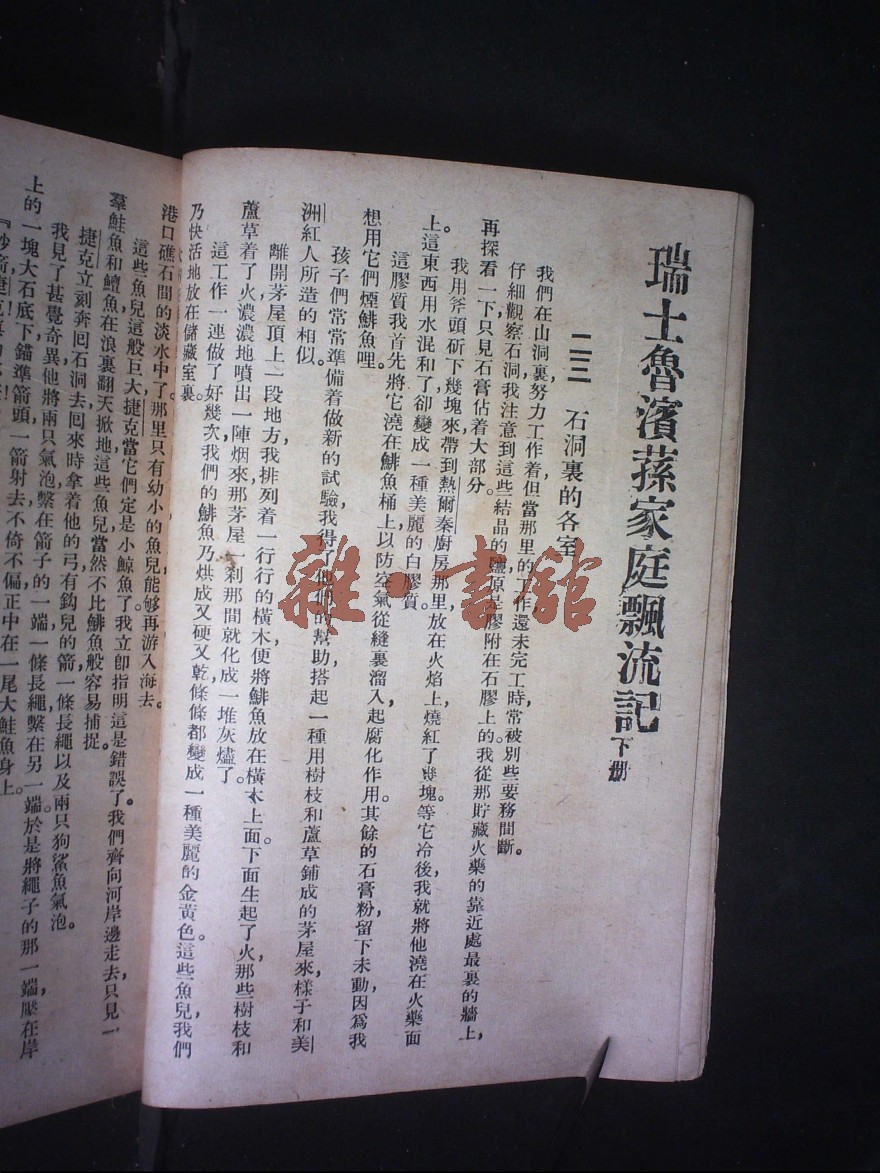 瑞士魯濱蓀家庭飄流記下册
二三　石洞裏的各室
我們在山洞裏努力工作着但當那里的工作還未完工時，常被別些要務間斷。
仔細觀察石洞，我注意到這些結晶的鹽原是膠附在石膠上的。我從那貯藏火藥的靠近處最裏的牆上，
再探看一下，只見石膏佔着大部分。
我用斧頭斫下幾塊來，帶到熱爾秦廚房那里，放在火焰上燒紅了幾塊。等它冷後，我就將他澆在火藥面
上。這東西用水混和了，卻變成一種美麗的白膠質。
這膠質我首先將它澆在鯡魚桶上，以防空氣從縫裏溜入，起腐化作用。其餘的石膏粉留下未動，因爲我
想用它們煙鯡魚哩。
孩子們常常準備着做新的試驗，我得了他們的幫助，搭起一種用樹枝和蘆草鋪成的茅屋來，樣子和美
洲紅人所造的相似。
離開茅屋頂上一段地方，我排列着一行行的橫木，便將鯡魚放在橫木上面。下面生起了火，那些樹枝和
蘆草着了火，濃濃地噴出一陣烟來，那茅屋一刹那間就化成一堆灰燼了。
這工作一連做了好幾次，我們的鯡魚乃烘成又硬又乾，條條都變成一種美麗的金黃色。這些魚兒，我們
乃快活地放在儲藏室裏。
港口礁石間的淡水中了，那里只有幼小的魚兒能够再游入海去。
這些魚兒這般巨大，捷克當它們定是小鯨魚了。我立卽指明這是錯誤了。我們齊向河岸邊走去，只見一
羣鮭魚和鱣魚在浪裏翻天掀地，這些魚兒當然不比鯡魚般容易捕捉。
捷克立刻奔囘石洞去，囘來時拿着他的弓，有鈎兒的箭，一條長繩，以及兩只狗鯊魚氣泡。
我見了甚覺奇異，他將兩只氣泡繫在箭子的一端，一條長繩繫在另一端。於是將繩子的那一端壓在岸
上的一塊大石底下，錨準箭頭，一箭射去，不倚不偏，正中在一尾大鮭魚身上。
雜·書館